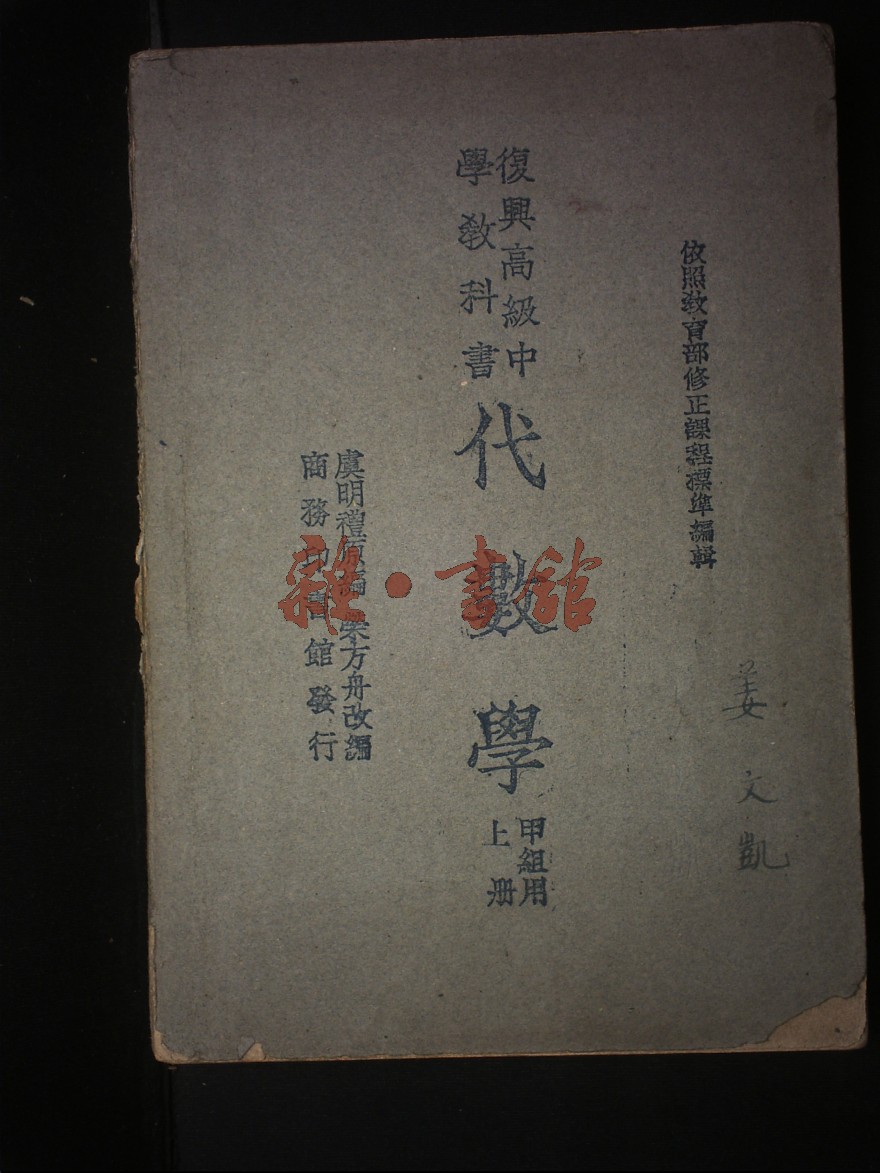 依照教育部修正課程標準編輯
復興高級中
學教科書
代數學
甲組用
上册
虞明禮原編 榮方舟改編
商務印書館發行
姜文凱
雜·書館